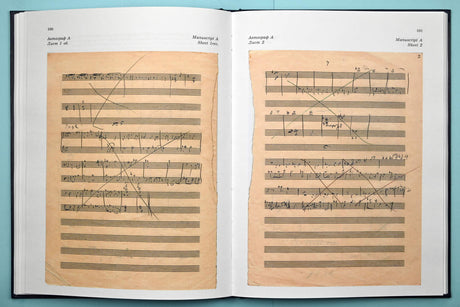 100
Автограф А
Лист 1 об.
Manuscript A
Sheet 1rev.
101
Автограф А
Лист 2
Manuscript A
Sheet 2